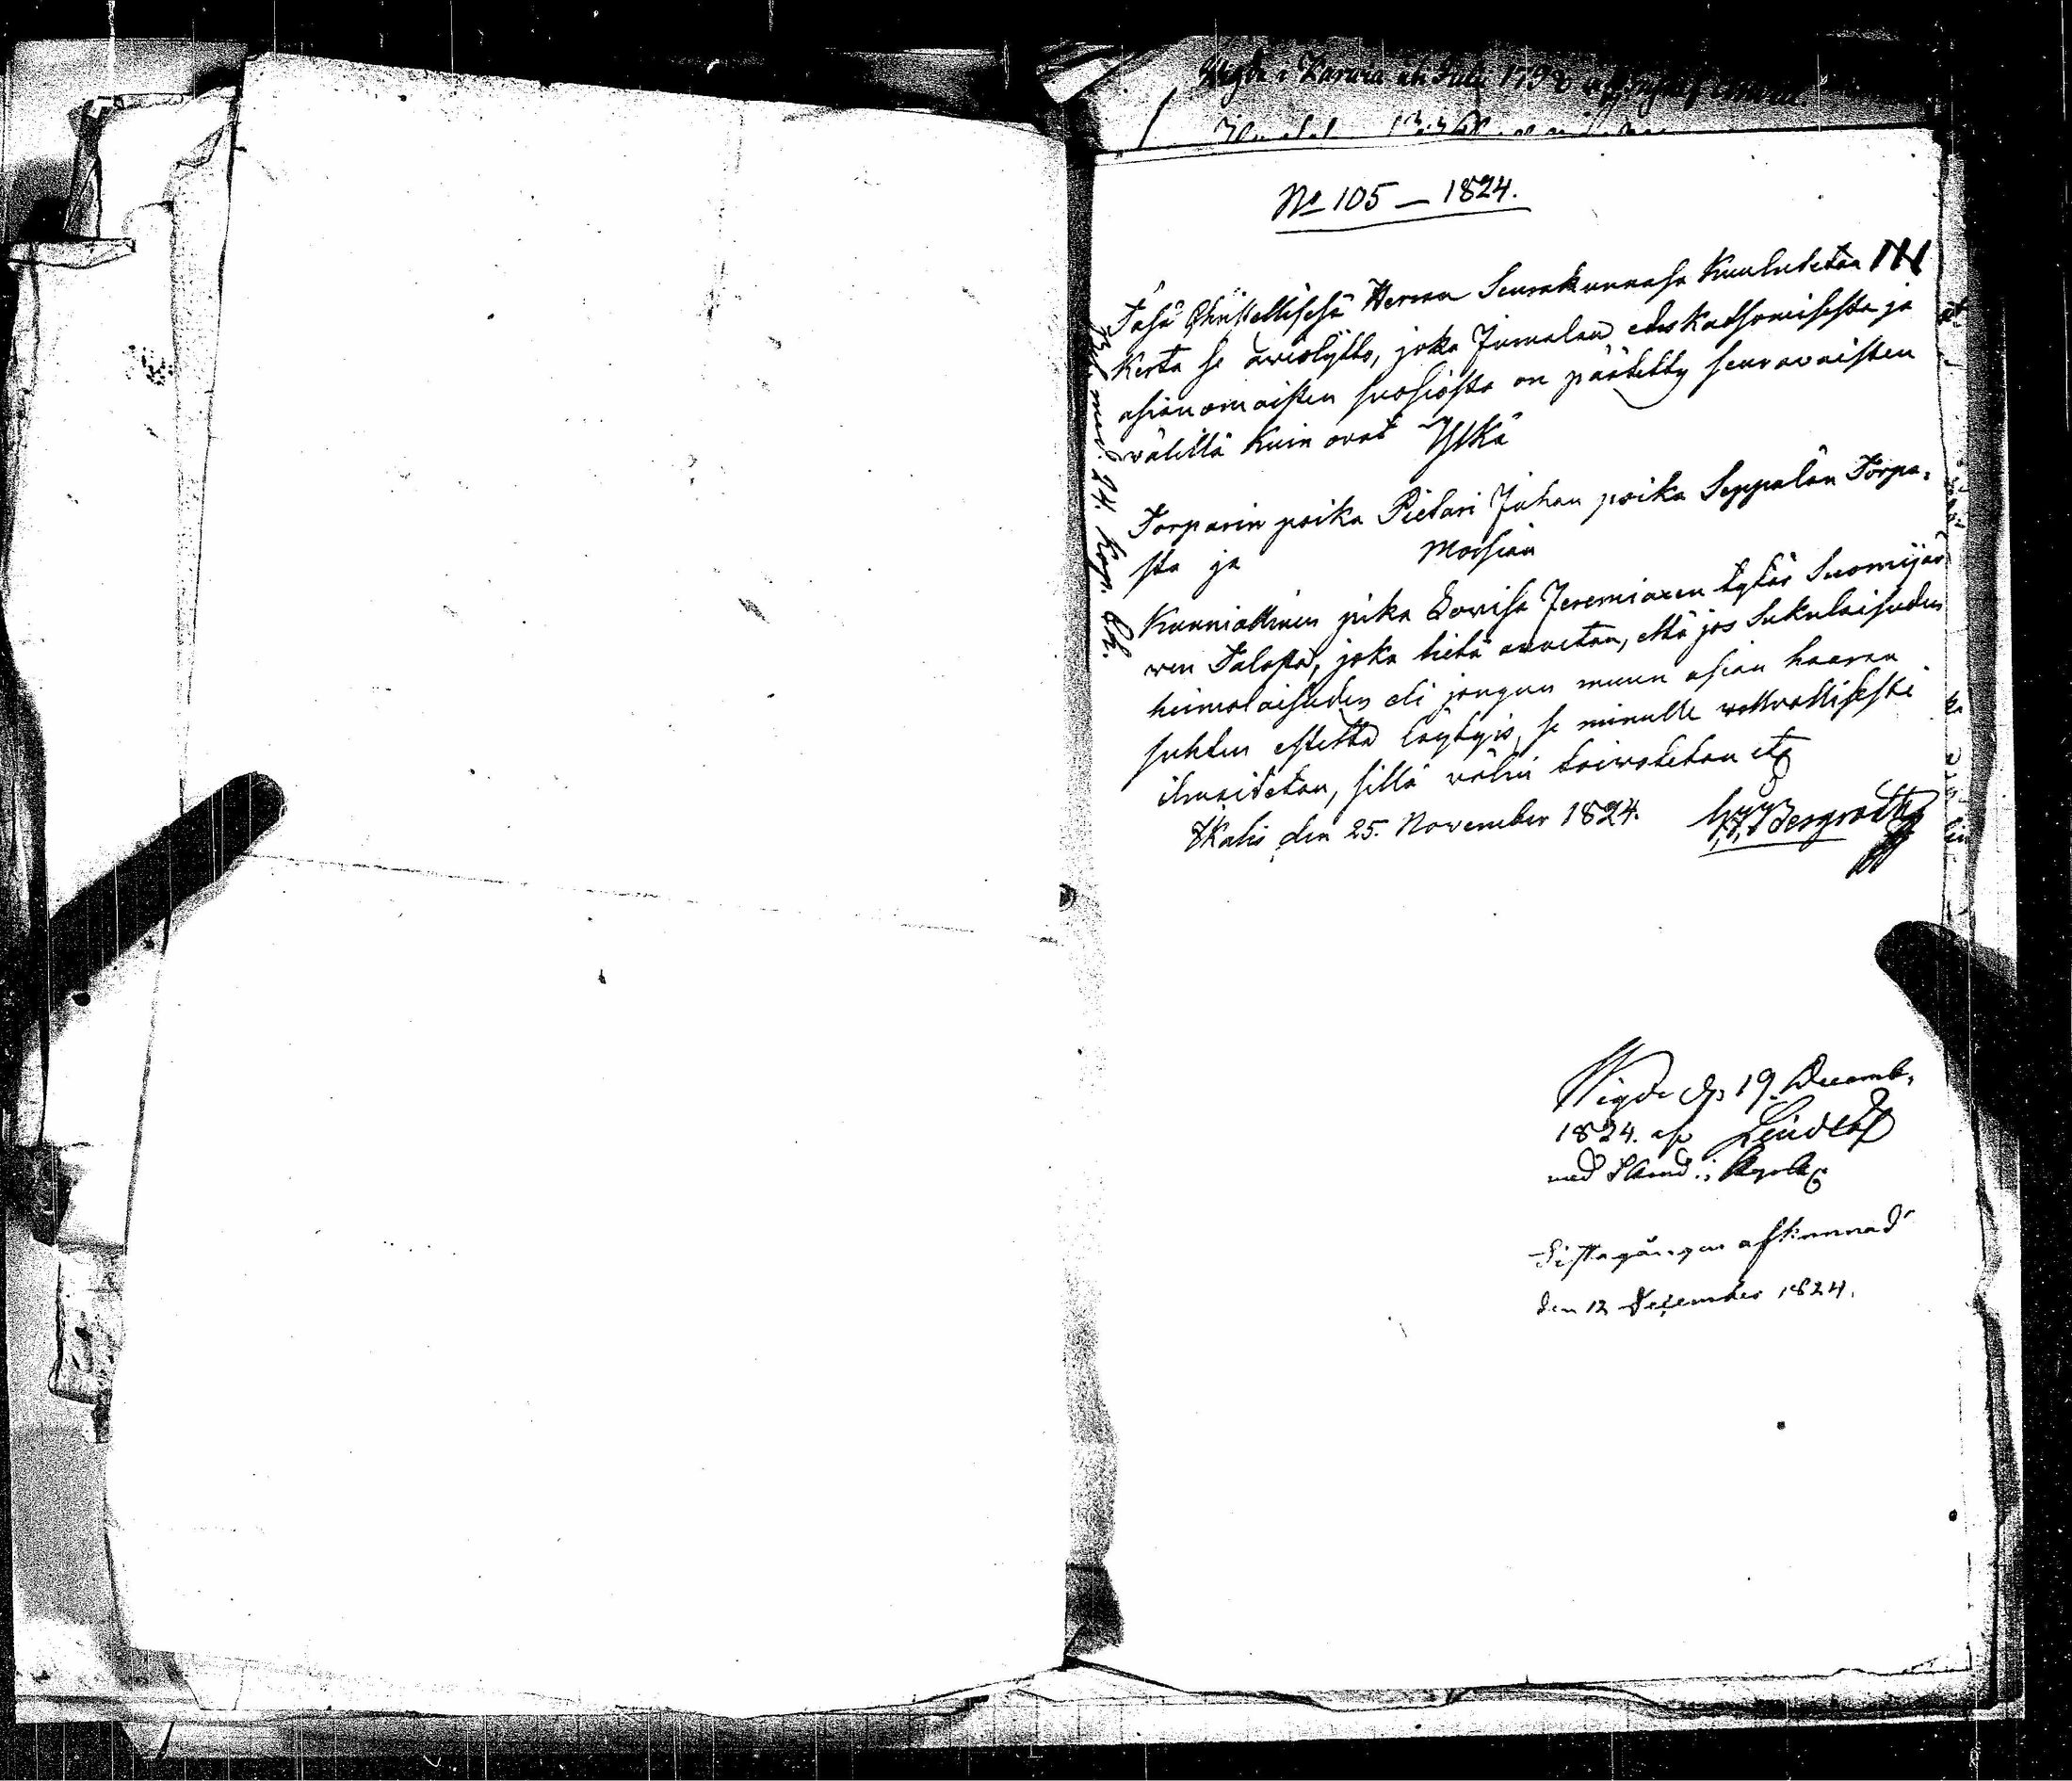 Wigde i 1792
No 105 — 1824.
Täsä Christellisesä Herran Seurakunnasa Kuulutetan III
Kerta se awioskäsky, joka Jumalan edeskatsomisesta ja
asianomaisten suosiosta on päätetty seurawaisten
wälillä kuin owat Yltä
Torparin poika Pietari Juhan poika Seppälän Torpa-
sta ja Morsian
Kunniallinen pika Lovisa Jeremiaxen tytär Suomijär
wen Talosta, joka tietä annetan, että jos Sukulaisuden
heimolaisuden eli jongun muun asian haaran
suhten estettä löytyis, se minulle wallallisesti
ilmoitetan, sillä wälin toiwotetan etc
IKalis den 25. November 1824.
med 24. Kop.
Wigde d. 19 Decemb.
1824. af Lindelöf
med
Sista gången aflkunnad
den 12 December 1824.